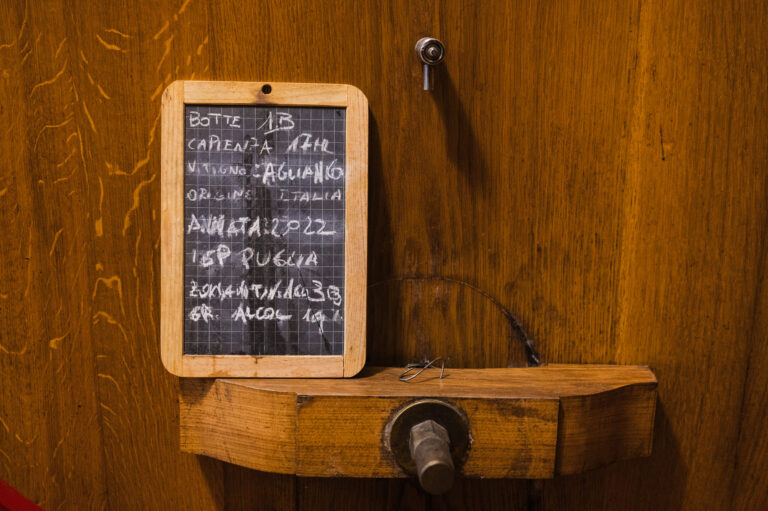 BOTTE 1B
CAPIENZA 17HL
VITIGNO: AGLIANICO
ORIGINE: ITALIA
ANNATA: 2022
PUGLIA
ZONA VITIVINICOLA
GR. ALCOL